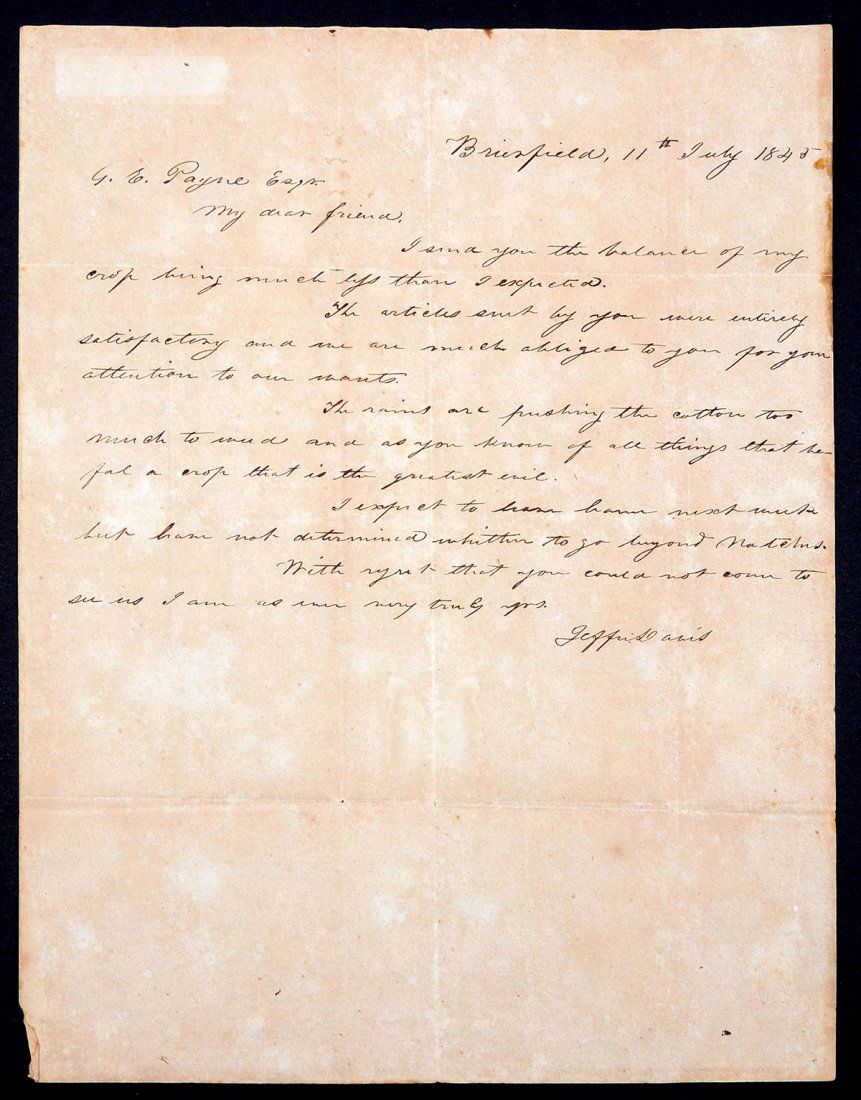 Brierfield, 11th July 1845
My dear friend,
I send you the balance of my
crop being much less than I expected.
The articles sent by you were entirely
satisfactory and we are much obliged to you for your
attention to our wants.
The rains are pushing the cotton too
much to weed and as you know of all things that be-
fal a crop that is the greatest evil.
I expect to leave home next week
but have not determined whither to go beyond Natchez.
With regret that you could not come to
see us I am as ever very truly yrs.
Jeffn Davis